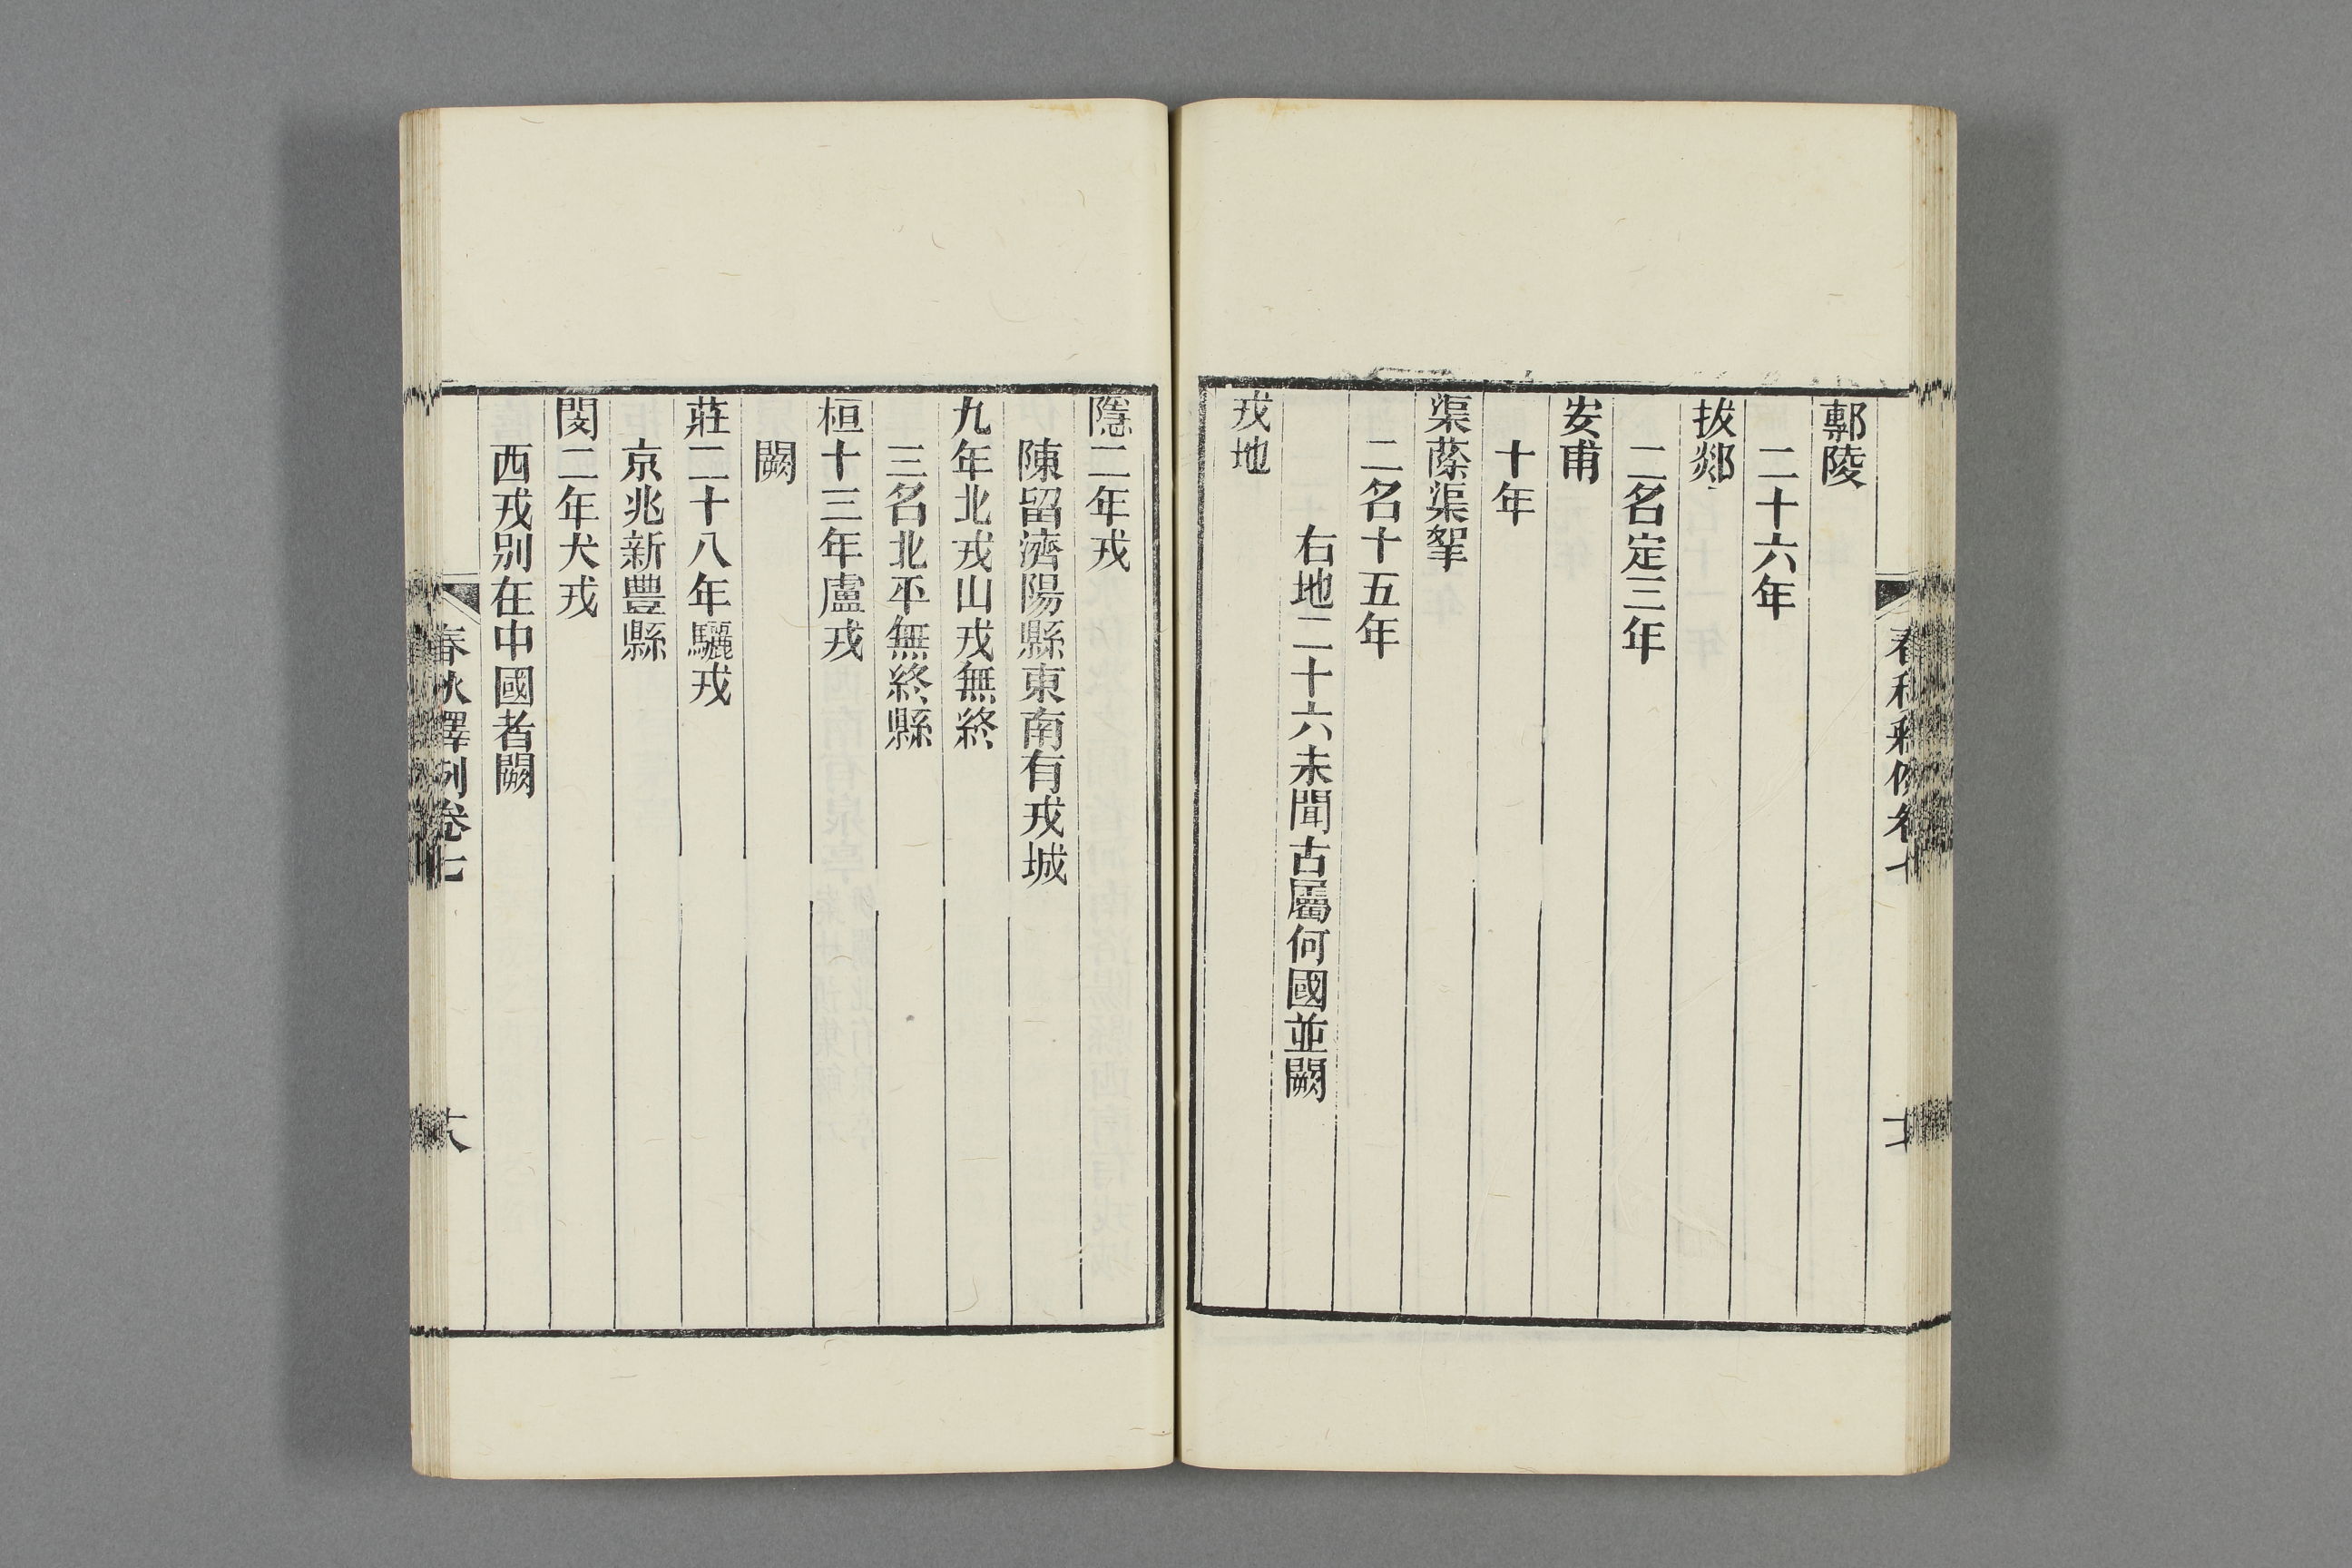 鄟陵
二十六年
拔郯
二名定三年
安甫
十年
渠蒢渠挐
二名十五年
右地二十六未聞古屬何國並闕
戎地
隱二年戎
陳留濟陽縣東南有戎城
九年北戎山戎無終
三名北平無終縣
桓十三年盧戎
闕
莊二十八年驪戎
京兆新豐縣
閔二年犬戎
西戎別在中國者闕
春秋釋例卷七